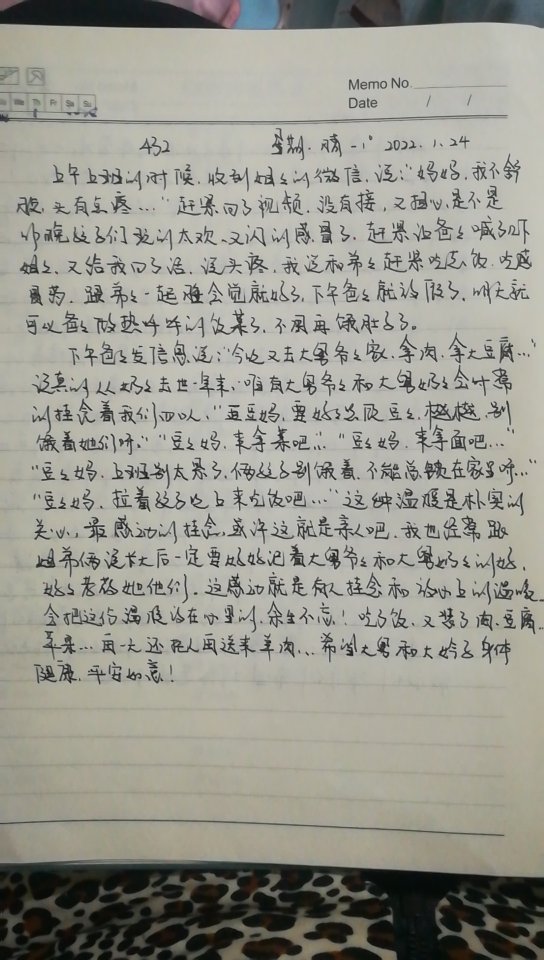 Th Fr Sa Su
Memo No.
Date / /
452 星期一 晴 -1° 2022.1.24
上午上班的时候,收到姐姐的微信,说:"妈妈,我不舒
服,头有点疼…"赶紧回了视频,没有接,又担心是不是
昨晚孩子们玩的太欢,又闪的感冒了,赶紧让爸爸喊了下
姐姐,又给我回了话,说头疼,我说和弟弟赶紧吃点饭,吃感
冒药,跟弟弟一起睡会觉就好了,下午爸爸就放假了,明天就
可以爸爸做热呼呼的饭菜了,不用再饿肚子了。
下午爸爸发信息说:"今晚又去大舅爷爷家,拿肉,拿大豆腐…"
说真的从奶奶去世一年来,唯有大舅爷爷和大舅奶奶会时常
的挂念着我们四口,"豆豆妈,要好好照顾豆豆,樾樾,别
饿着她们呀。""豆豆妈,来拿菜吧…""豆豆妈,来拿面吧…"
"豆豆妈,上班别太累了,俩孩子别饿着,不能总锁在家里呀…"
"豆豆妈,拉着孩子晚上来吃饭吧…"这种温暖是朴实的
关心,最感动的挂念,或许这就是亲人吧,我也经常跟
姐弟俩说长大后一定要好好记着大舅爷爷和大舅奶奶的好,
好好孝敬她他们。这感动就是有人挂念和放心上的温暖
会把这份温暖放在心里的,余生不忘!吃了饭,又装了肉,豆腐,
苹果…再一天还托人再送来羊肉…希望大舅和大妗子身体
健康,平安如意!